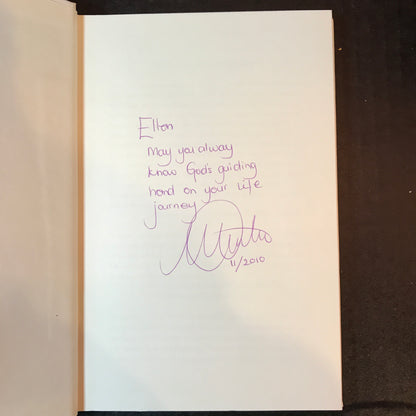 Elton
May you alway
know God's guiding
hand on your life
journey
11/2010